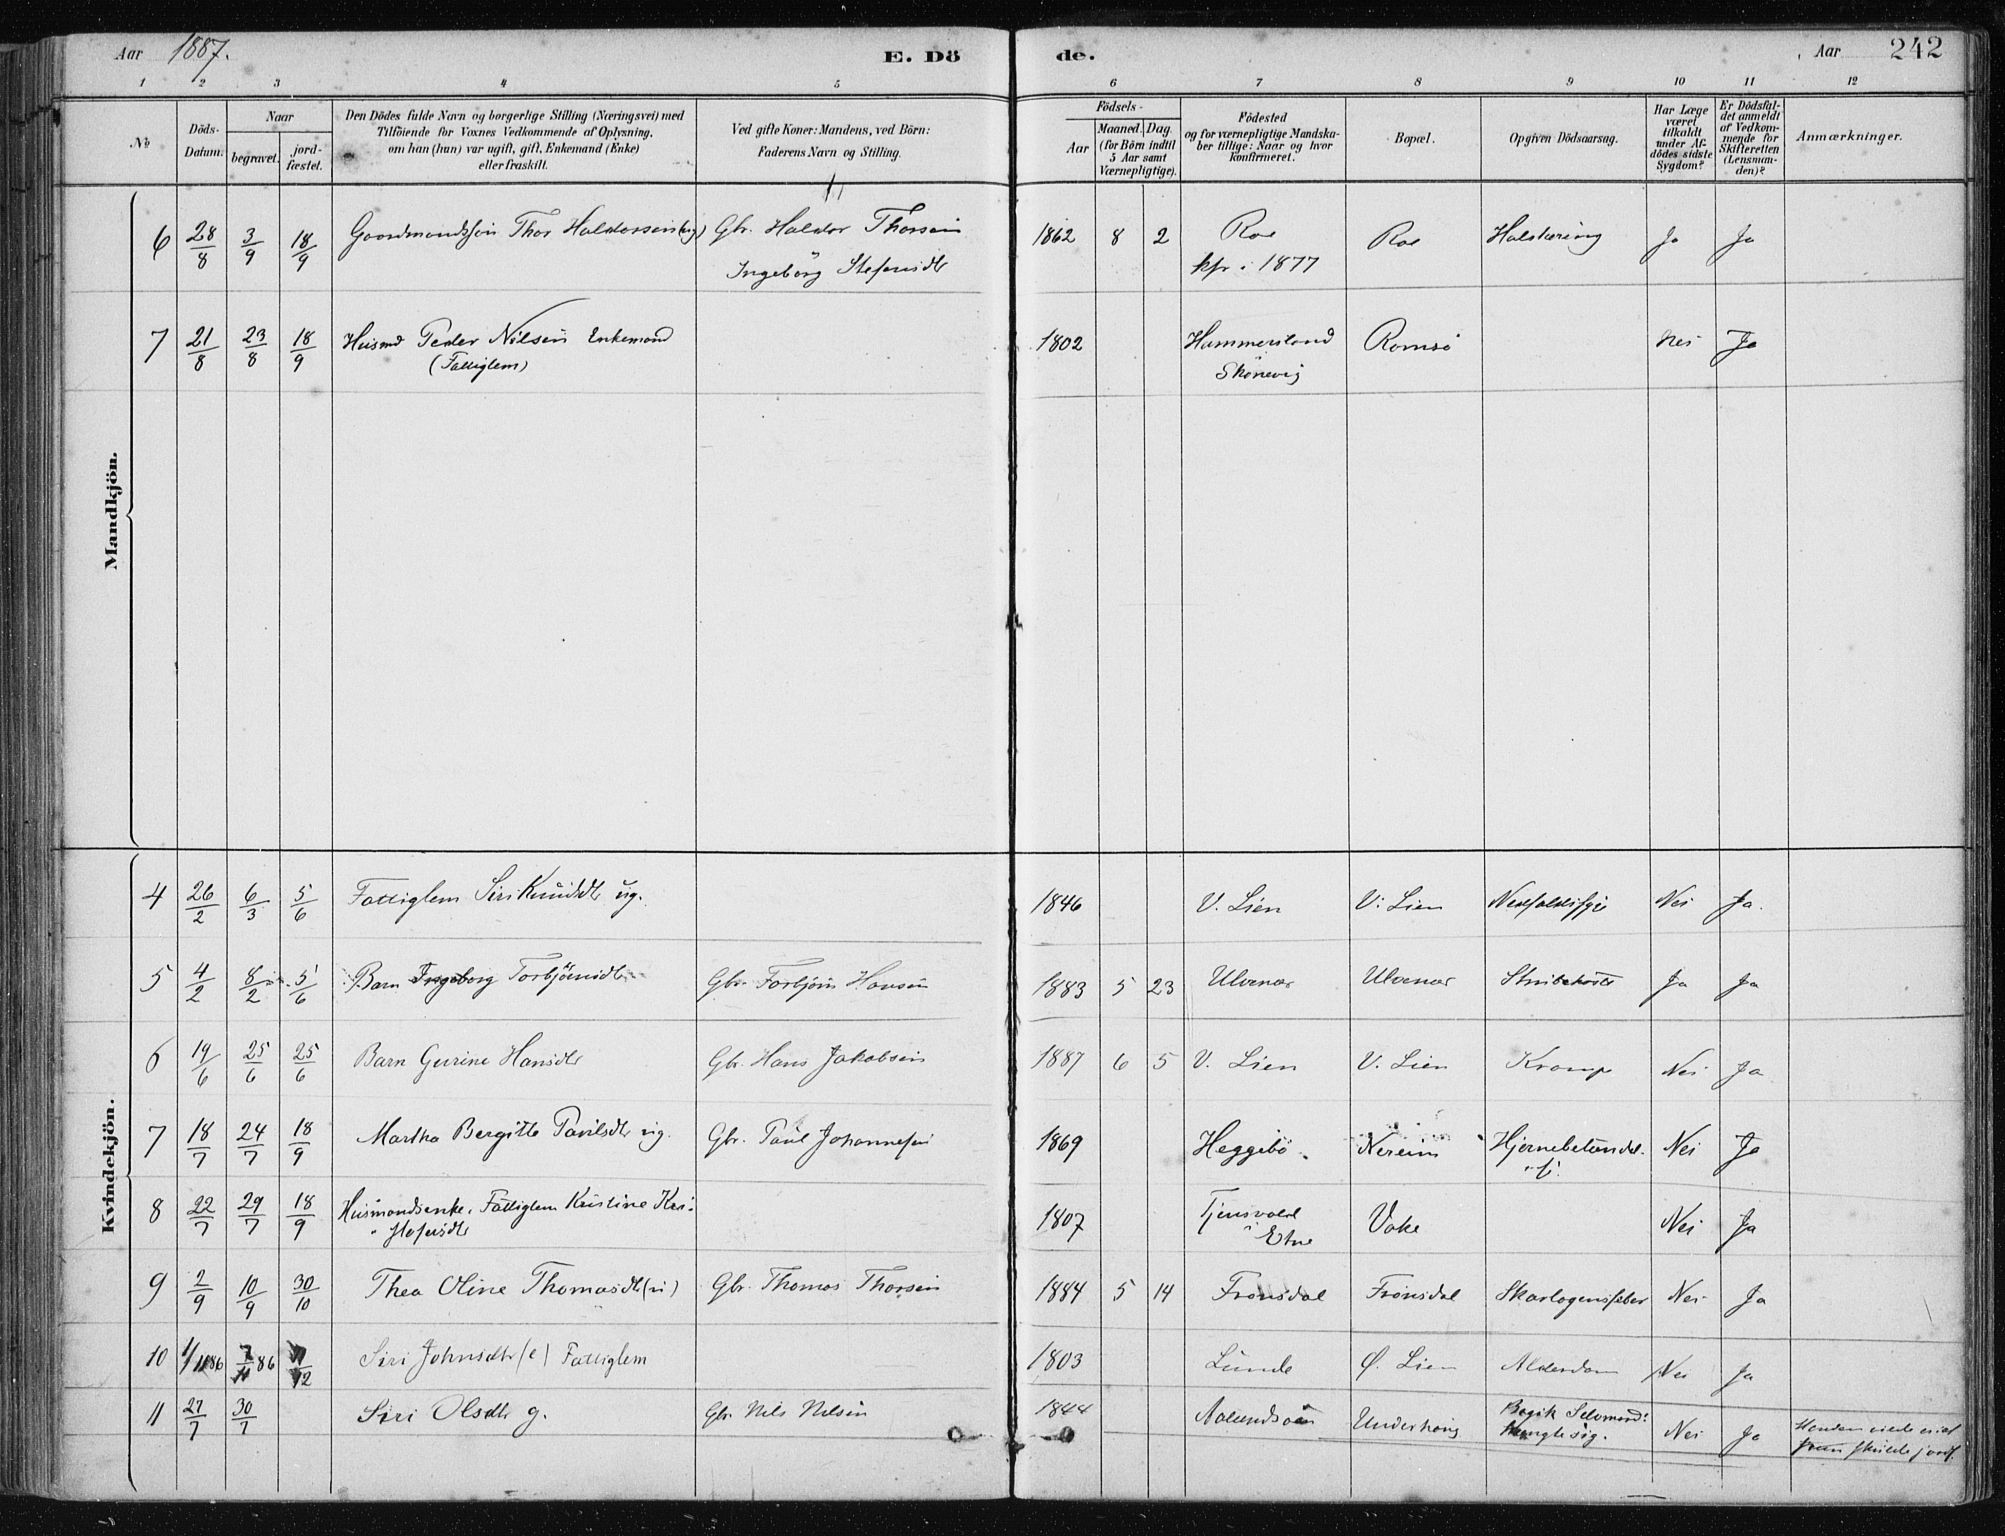 Aar 1887. E. Dö de. Aar 242
1 2 3 4 5 6 7 8 9 10 11 12
№
Döds-Datum.
Naar
begravet.
jordfæstet.
Den Dödes fulde Navn og borgerlige Stilling (Næringsvei) med
Tilföiende for Voxnes Vedkommende af Oplysning,
om han (hun) var ugift, gift, Enkemand (Enke)
eller fraskilt.
Ved gifte Koner: Mandens, ved Börn:
Faderens Navn og Stilling.
Födsels-
Aar
Maaned. Dag.
(for Börn indtil
5 Aar samt
Værnepligtige).
Födested
og for værnepligtige Mandska-
ber tillige: Naar og hvor
konfirmeret.
Bopæl.
Opgiven Dödsaarsag.
Har Læge
været
tilkaldt
under Af-
dödes sidste
Sygdom?
Er Dödsfal-
det anmeldt
af Vedkom-
mende for
Skifteretten
(Lensman-
den)?
Anmærkninger.
Mandkjön.
6 28/8 3/9 18/9 Thor Haldorsen (ug) Gbr. Haldor Thorsen 1862 8 2 Roe Roe Halskræng Ja Ja
Ingeborg Stefensdtr kfr i 1877
7 21/8 23/8 18/9 Husmd Peder Nilsen Enkemand 1802 Hammersland Romsö Nei Ja
(Fattiglem) Skönevig
Kvindekjön.
4 26/2 6/3 5/6 Fattiglem Siri Knudsdtr ug. 1846 V. Lien V. Lien Nei Ja.
5 4/2 8/2 5/6 Barn Ingeborg Torbjörnsdtr Gbr. Torbjörn Hansen 1883 5 23 Ulvenæs Ulvenæs Strubehoste Ja Ja
6 19/6 25/6 25/6 Barn Gurine Hansdtr Gbr. Hans Jakobsen 1887 6 5 V. Lien V. Lien Krampe Nei Ja
7 18/7 24/7 18/9 Martha Bergitte Paulsdtr ug. Gbr. Paul Johannesen 1869 Heggebö Nereim Hjernebetændel- Nei Ja
8 22/7 29/7 18/9 Husmandsenke, Fattiglem Kristine Kri- 1807 Tjensvold Vake Nei Ja
stofersdtr Etne
9 2/9 10/9 30/10 Thea Oline Thomasdtr Gbr. Thomas Thorsen 1884 5 14 Frönsdal Frönsdal Skarlagensfeber Nei Ja
10 1/11 86 7/11 86 /12 Siri Johnsdtr (e) Fattiglem 1803 Lunde Ö. Lien Alderdom Nei Ja
11 27/7 30/7 Siri Olsdtr g. Gbr. Nils Nilsen 1844 Underhaug Begik Selvmord: Nei Ja